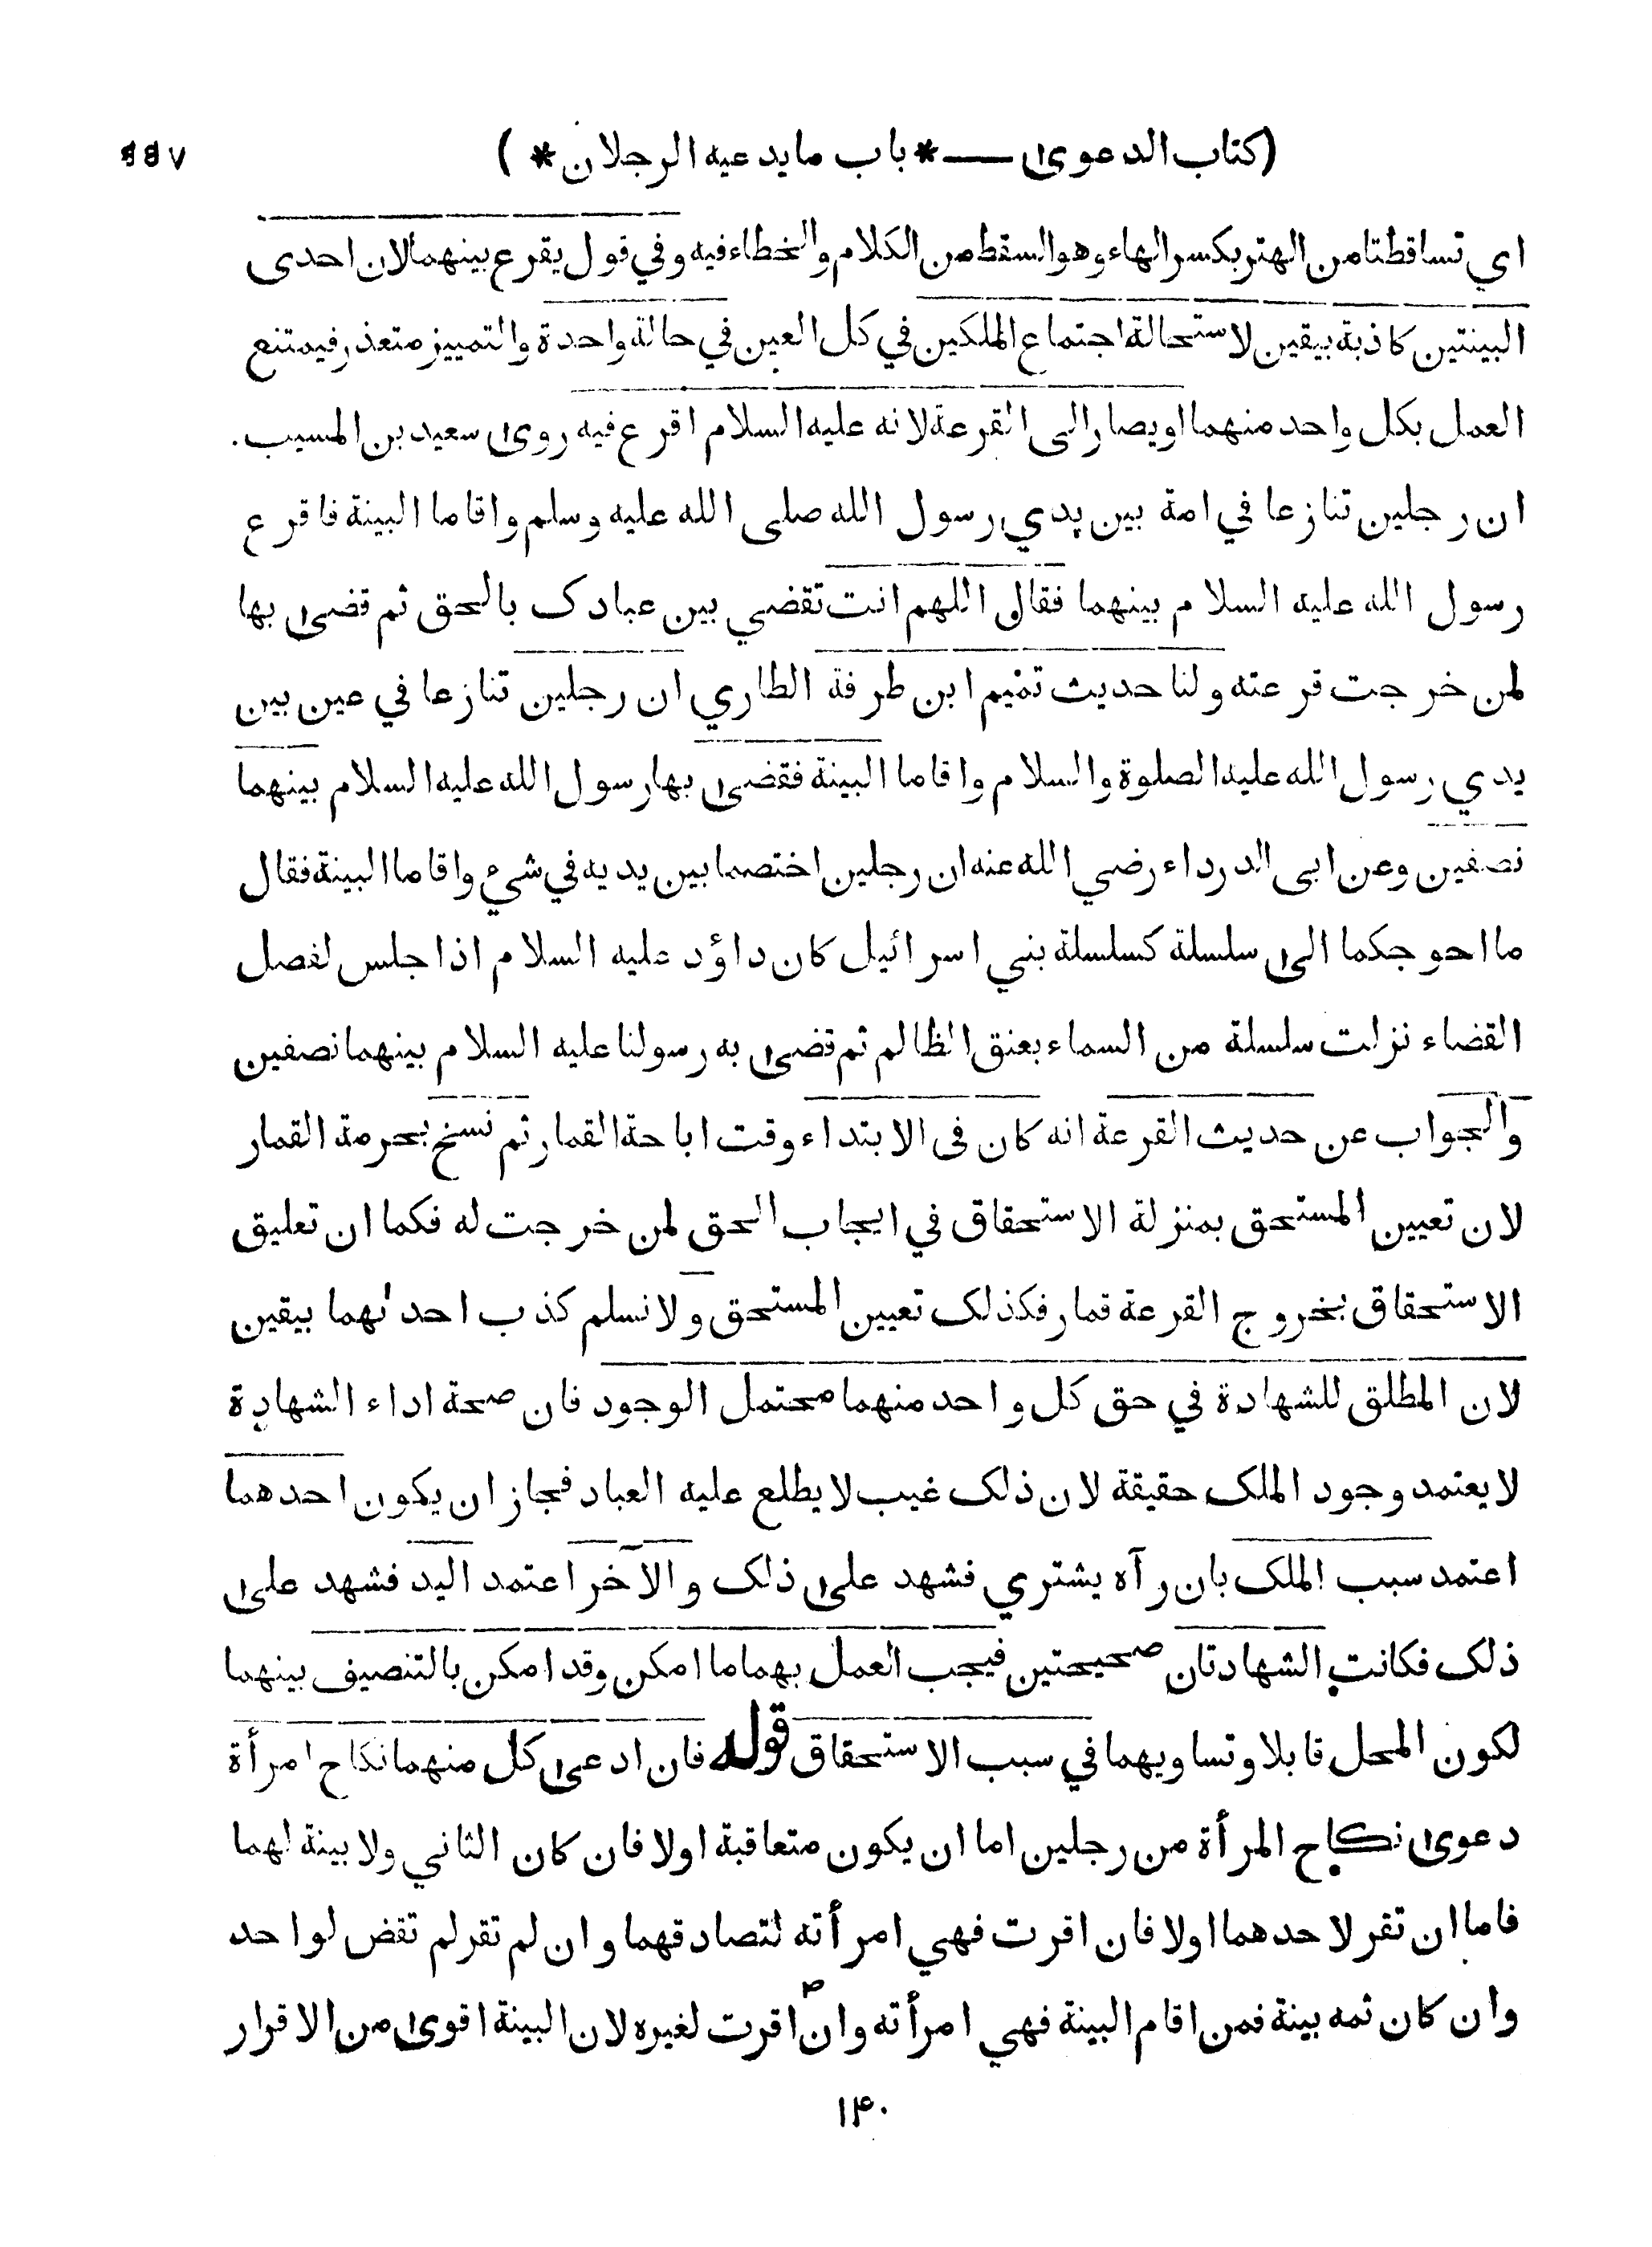 (كتاب الدعوى — * باب ما يدعيه الرجلان * )
اي تساقطتا من الهتر بكسر الهاء وهو السقط من الكلام والخطاء فيه وفي قول يقرع بينهما لان احدى
البينتين كاذبة بيقين لاستحالة اجتماع الملكين في كل العين في حالة واحدة والتمييز متعذر فيمتنع
العمل بكل واحد منهما او يصار الى القرعة لانه عليه السلام اقرع فيه روى سعيد بن المسيب.
ان رجلين تنازعا في امة بين يدي رسول الله صلى الله عليه وسلم واقاما البينة فاقرع
رسول الله عليه السلام بينهما فقال اللهم انت تقضي بين عبادك بالحق ثم قضى بها
لمن خرجت قرعته ولنا حديث تميم ابن طرفة الطاري ان رجلين تنازعا في عين بين
يدي رسول الله عليه الصلوة والسلام واقاما البينة فقضى بها رسول الله عليه السلام بينهما
نصفين وعن ابى الدرداء رضي الله عنه ان رجلين اختصما بين يديه في شيء واقاما البينة فقال
ما احوجكما الى سلسلة كسلسلة بني اسرائيل كان داؤد عليه السلام اذا جلس لفصل
القضاء نزلت سلسلة من السماء بعنق الظالم ثم قضى به رسولنا عليه السلام بينهما نصفين
والجواب عن حديث القرعة انه كان فى الابتداء وقت اباحة القمار ثم نسخ بحرمة القمار
لان تعيين المستحق بمنزلة الاستحقاق في ايجاب الحق لمن خرجت له فكما ان تعليق
الاستحقاق بخروج القرعة قمار فكذلك تعيين المستحق ولا نسلم كذب احدٰهما بيقين
لان المطلق للشهادة في حق كل واحد منهما محتمل الوجود فان صحة اداء الشهادة
لا يعتمد وجود الملك حقيقة لان ذلك غيب لا يطلع عليه العباد فجاز ان يكون احدهما
اعتمد سبب الملك بان رآه يشتري فشهد على ذلك والآخر اعتمد اليد فشهد على
ذلك فكانت الشهادتان صحيحتين فيجب العمل بهما ما امكن وقد امكن بالتنصيف بينهما
لكون المحل قابلا وتساويهما في سبب الاستحقاق قوله فان ادعى كل منهما نكاح امرأة
دعوى نكاح المرأة من رجلين اما ان يكون متعاقبة اولا فان كان الثاني ولا بينة لهما
فاما ان تقر لاحدهما اولا فان اقرت فهي امرأته لتصادقهما وان لم تقر لم تقض لواحد
وان كان ثمه بينة فمن اقام البينة فهي امرأته وان اقرت لغيره لان البينة اقوى من الاقرار
١٤٠